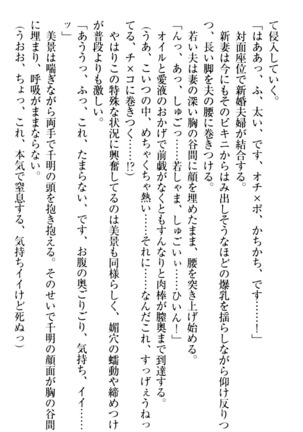 て侵入していく。
「はああっ、ふ、太い、です、オチ×ポ、かちかち、です……！」
対面座位で新婚夫婦が結合する。
新妻は今にもそのビキニからはみ出しそうなほどの爆乳を揺らしながら仰け反りつ
つ、長い脚を夫の腰に巻きつける。
若い夫は妻の深い胸の谷間に顔を埋めたまま、腰を突き上げ始める。
「んっ、あっ、しゅごっ……若しゃま、しゅごいぃ……ひぃん！」
オイルと愛液のおかげで前戯がなくともすんなりと肉棒が膣奥まで到達する。
（うあ、こいつの中、めちゃくちゃ熱い……それに……なんだこれ、すっげぇうねっ
てる、チ×コに巻きつく……!?）
やはりこの特殊な状況に興奮してるのは美景も同様らしく、媚穴の蠕動や締めつけ
が普段よりも激しい。
「あううっ、ふっ、これ、たまらない、です、お腹の奥ごりごり、気持ち、イイ……
ッ」
美景は喘ぎながら両手で千明の頭を抱き抱える。そのせいで千明の顔面が胸の谷間
に埋まり、呼吸がままならない。
（うおお、ちょっ、これ、本気で窒息する、気持ちイイけど死ぬっ）